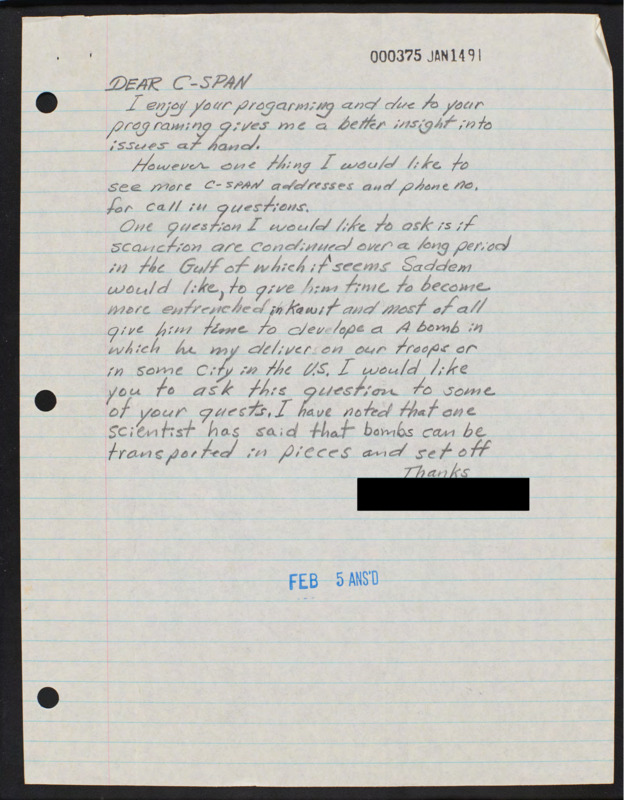 000375 JAN1491
DEAR C-SPAN
I enjoy your progarming and due to your
programing gives me a better insight into
issues at hand.
However one thing I would like to
see more C-SPAN addresses and phone no.
for call in questions.
One question I would like to ask is if
scanction are condinued over a long period
in the Gulf of which it seems Saddem
would like, to give him time to become
more entrenched in Kawit and most of all
give him time to develope a A bomb in
which he my deliver on our troops or
in some City in the U.S. I would like
you to ask this question to some
of your quests. I have noted that one
scientist has said that bombs can be
transported in pieces and set off
Thanks
FEB 5 ANS'D